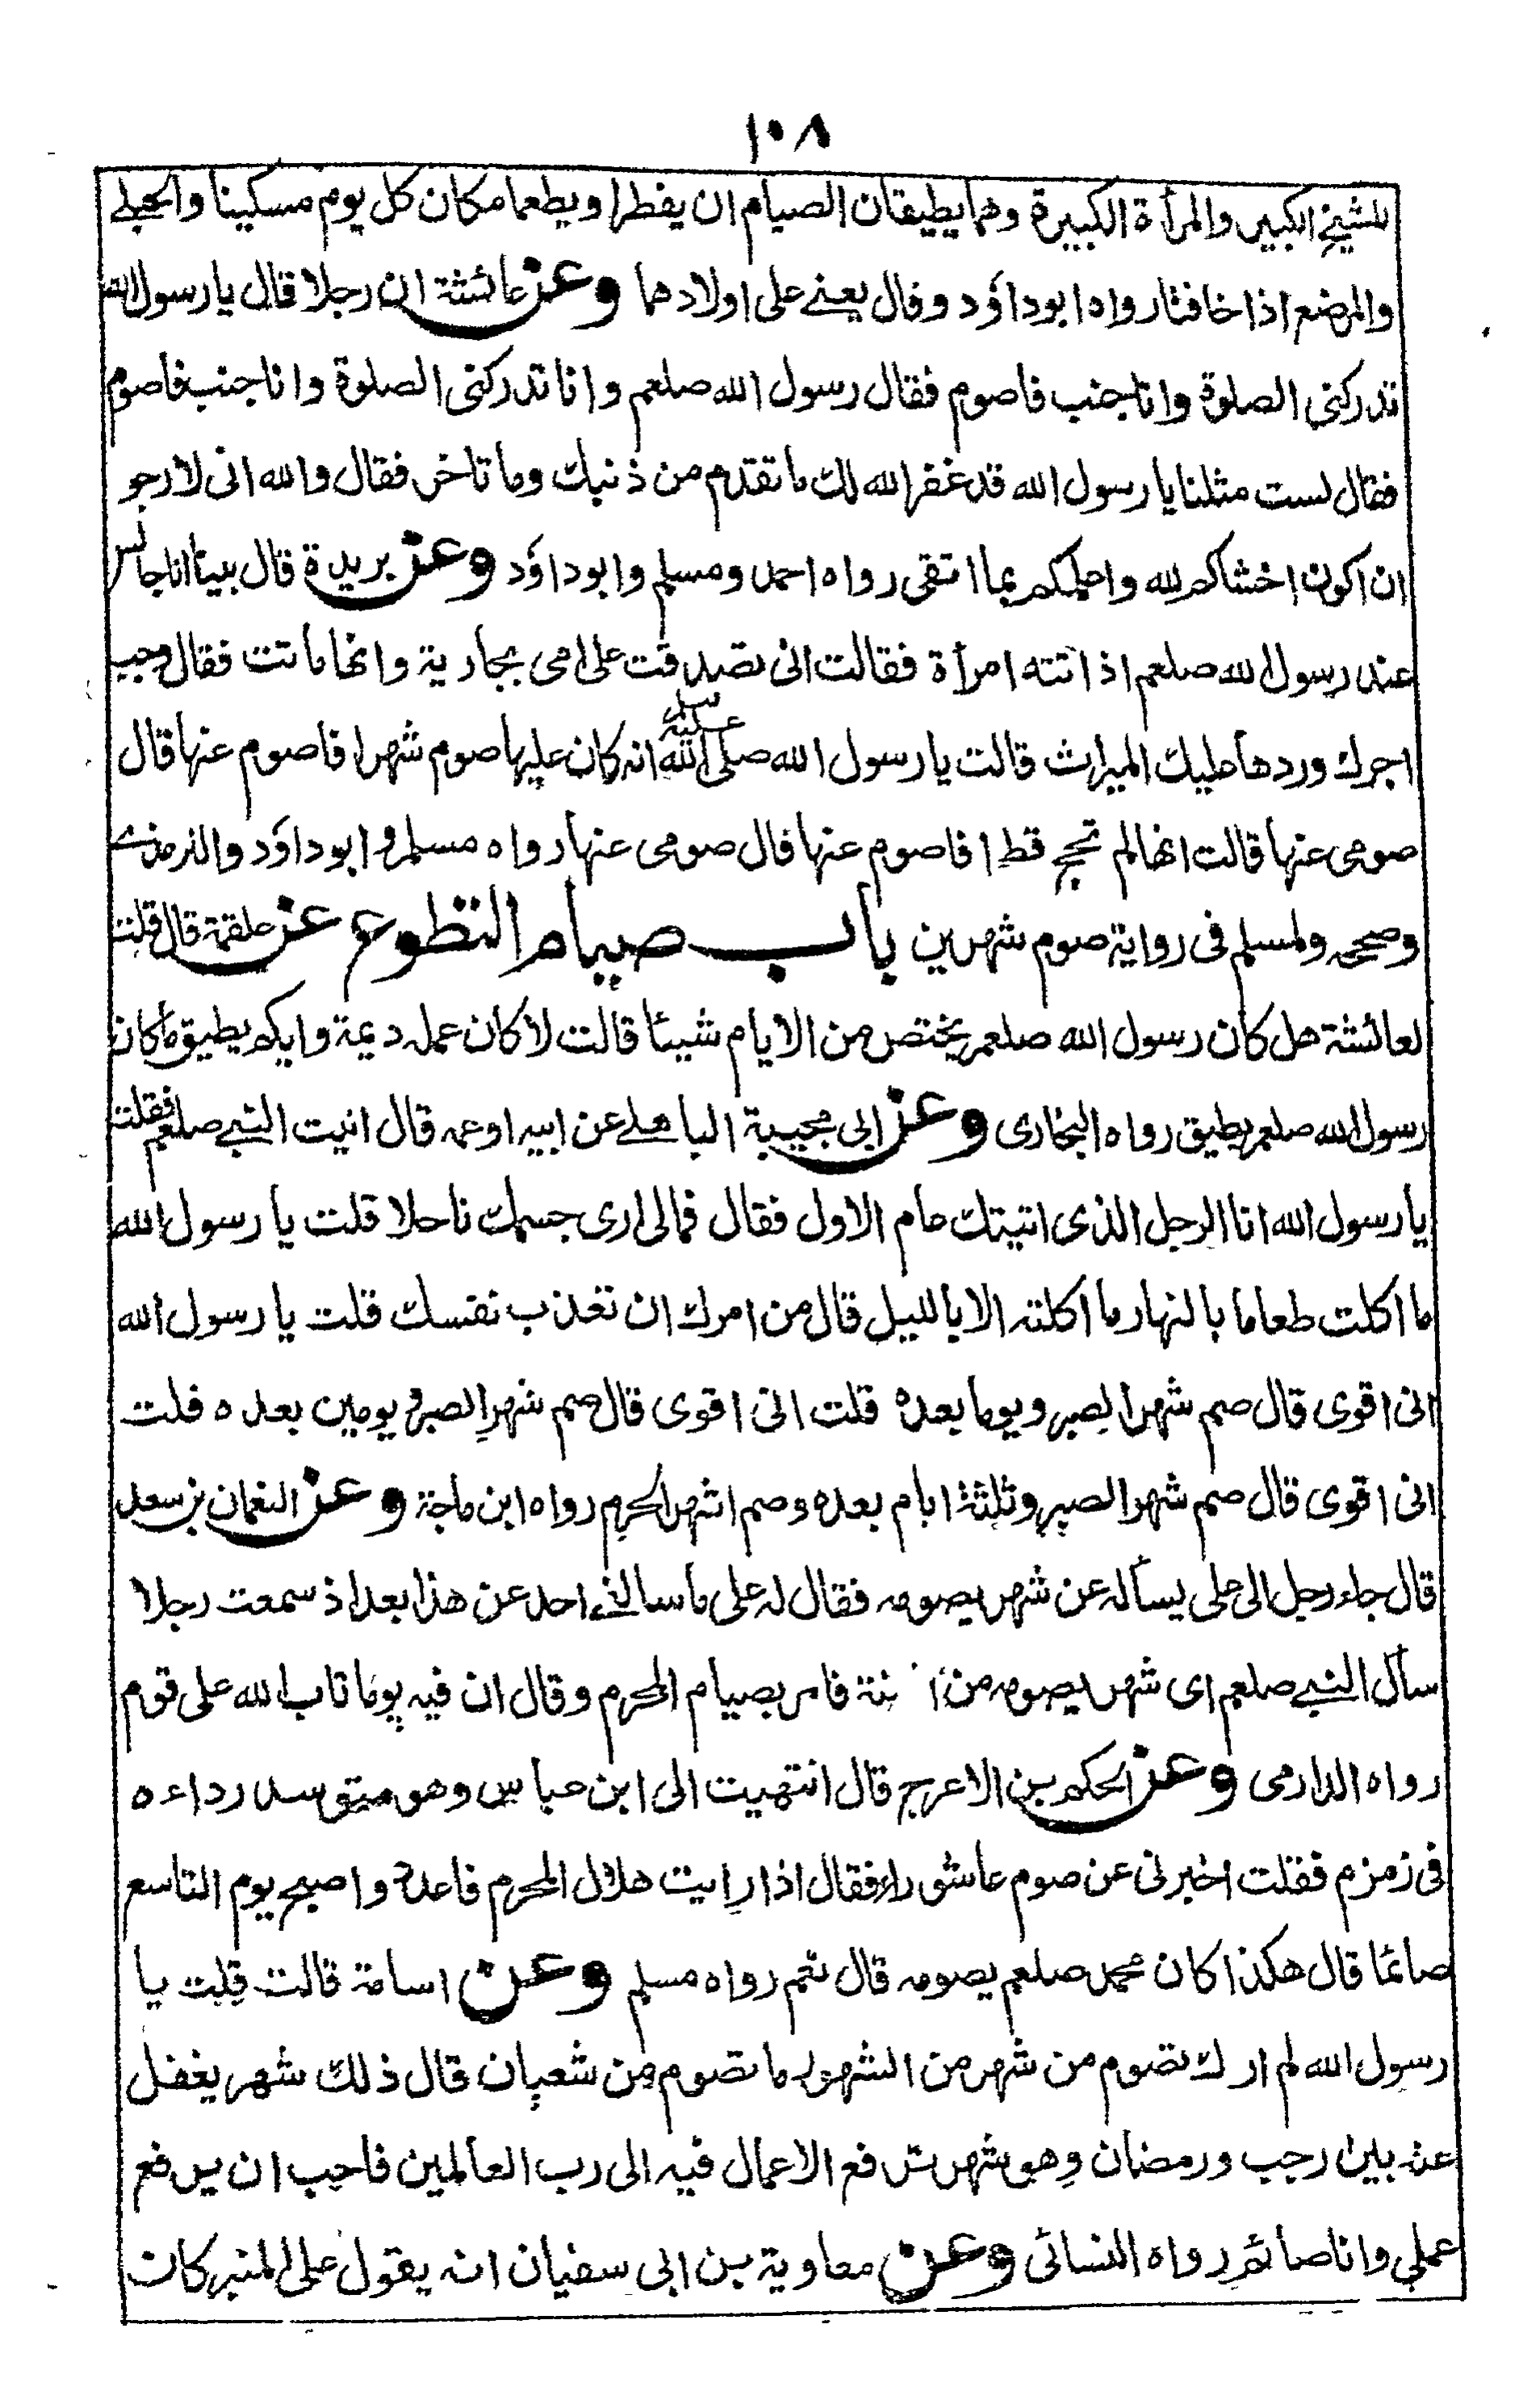 ١٠٨
للشيخ الكبير والمرأة الكبيرة وهما يطيقان الصيام ان يفطرا ويطعما مكان كل يوم مسكينا والحبلے
والمرضع اذا خافتا رواه ابو داؤد وقال يعنے على اولادهما وعن عائشة ان رجلا قال يا رسول الله
تدركنى الصلوة وانا جنب فاصوم فقال رسول الله صلعم وانا تدركنى الصلوة وانا جنب فاصوم
فقال لست مثلنا يا رسول الله قد غفر الله لك ما تقدم من ذنبك وما تاخر فقال والله انى لارجو
ان اكون اخشاكم لله واعلمكم بما اتقى رواه احمد ومسلم وابو داؤد وعن بريدة قال بينا انا جالس
عند رسول الله صلعم اذ اتته امرأة فقالت انى تصدقت على امى بجارية وانها ماتت فقال وجب
اجرك وردها عليك الميراث قالت يا رسول الله صلى الله عليه وسلم انه كان عليها صوم شهر افاصوم عنها قال
صومى عنها قالت انها لم تحج قط افاصوم عنها قال صومى عنها رواه مسلم وابو داؤد والترمذے
وصححه ولمسلم فى رواية صوم شهرين باب صيام التطوع عن علقمة قال قلت
لعائشة هل كان رسول الله صلعم يختص من الايام شيئا قالت لا كان عمله ديمة وايكم يطيق ما كان
رسول الله صلعم يطيق رواه البخارى وعن ابى مجيبة الباهلے عن ابيه او عمه قال اتيت النبے صلعم فقلت
يا رسول الله انا الرجل الذى اتيتك عام الاول فقال فمالى ارى جسمك ناحلا قلت يا رسول الله
ما اكلت طعاما بالنهار ما اكلته الا بالليل قال من امرك ان تعذب نفسك قلت يا رسول الله
انى اقوى قال صم شهر الصبر ويوما بعده قلت انى اقوى قال صم شهر الصبر ويومين بعده قلت
انى اقوى قال صم شهر الصبر وثلثة ايام بعده وصم اشهر الحرم رواه ابن ماجة وعن النعمان بن سعد
قال جاء رجل الى على يسأله عن شهر يصومه فقال له على ما سالنے احد عن هذا بعد اذ سمعت رجلا
سأل النبے صلعم اى شهر يصومه من فامر بصيام المحرم وقال ان فيه يوما تاب الله على قوم
رواه الدارمى وعن الحكم بن الاعرج قال انتهيت الى ابن عباس وهو متوسد رداءه
فى زمزم فقلت اخبرنى عن صوم عاشوراء فقال اذا رايت هلال المحرم فاعدد واصبح يوم التاسع
صائما قال هكذا كان محمد صلعم يصومه قال نعم رواه مسلم وعن اسامة قالت قلت يا
رسول الله لم ارك تصوم من شهر من الشهور ما تصوم من شعبان قال ذلك شهر يغفل
عنه بين رجب ورمضان وهو شهر ترفع الاعمال فيه الى رب العالمين فاحب ان يرفع
عملى وانا صائم رواه النسائى وعن معاوية بن ابى سفيان انه يقول على المنبر كان